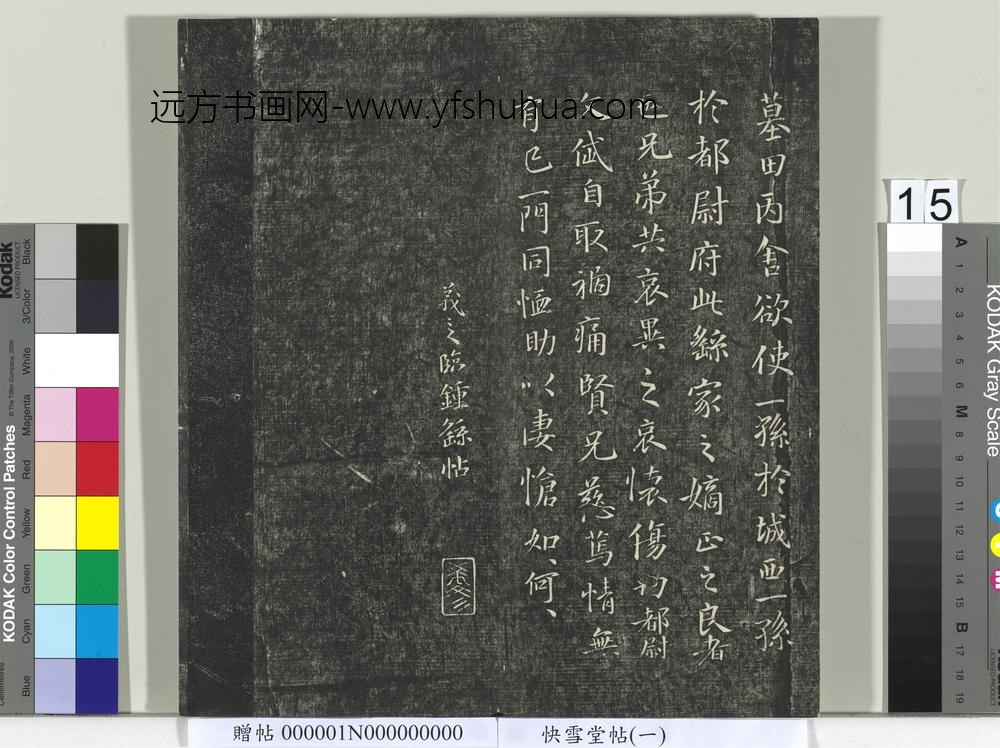 墓田丙舍欲使一孫於城西一孫
於都尉府此繇家之嫡正之良者
兄弟共哀異之哀懷傷切都尉
文岱自取禍痛賢兄慈篤情無
有已一門同恤助以悽愴如何
羲之臨鍾繇帖
远方书画网-www.yfshuhua.com
15
Kodak
LICENSED PRODUCT
Black
3/Color
White
Magenta
Red
Yellow
Green
Cyan
Blue
KODAK Color Control Patches
© The Tiffen Company, 2000
KODAK Gray Scale
A 1 2 3 4 5 6 M 8 9 10 11 12 13 14 15 B 17 18 19
贈帖 000001N000000000
快雪堂帖(一)